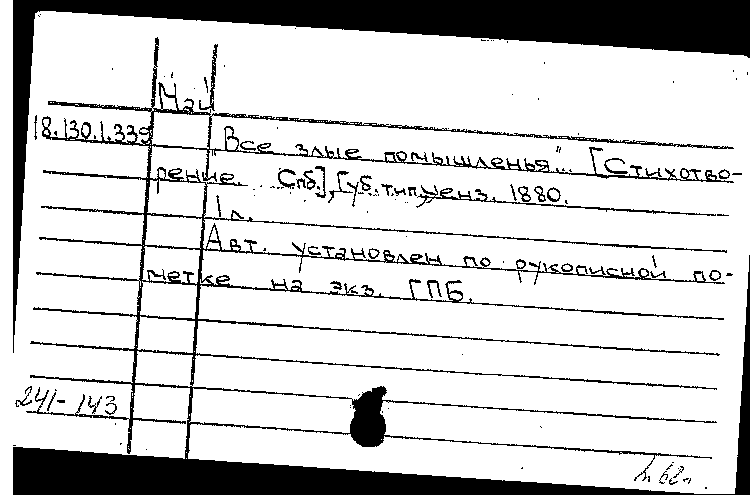 Май
18.130.1.339 „Все злые помышленья"... [Стихотво-
рение. Спб.], Губ. тип., ценз. 1880.
1 л.
Авт. установлен по рукописной по-
метке на экз. ГПБ.
241-143